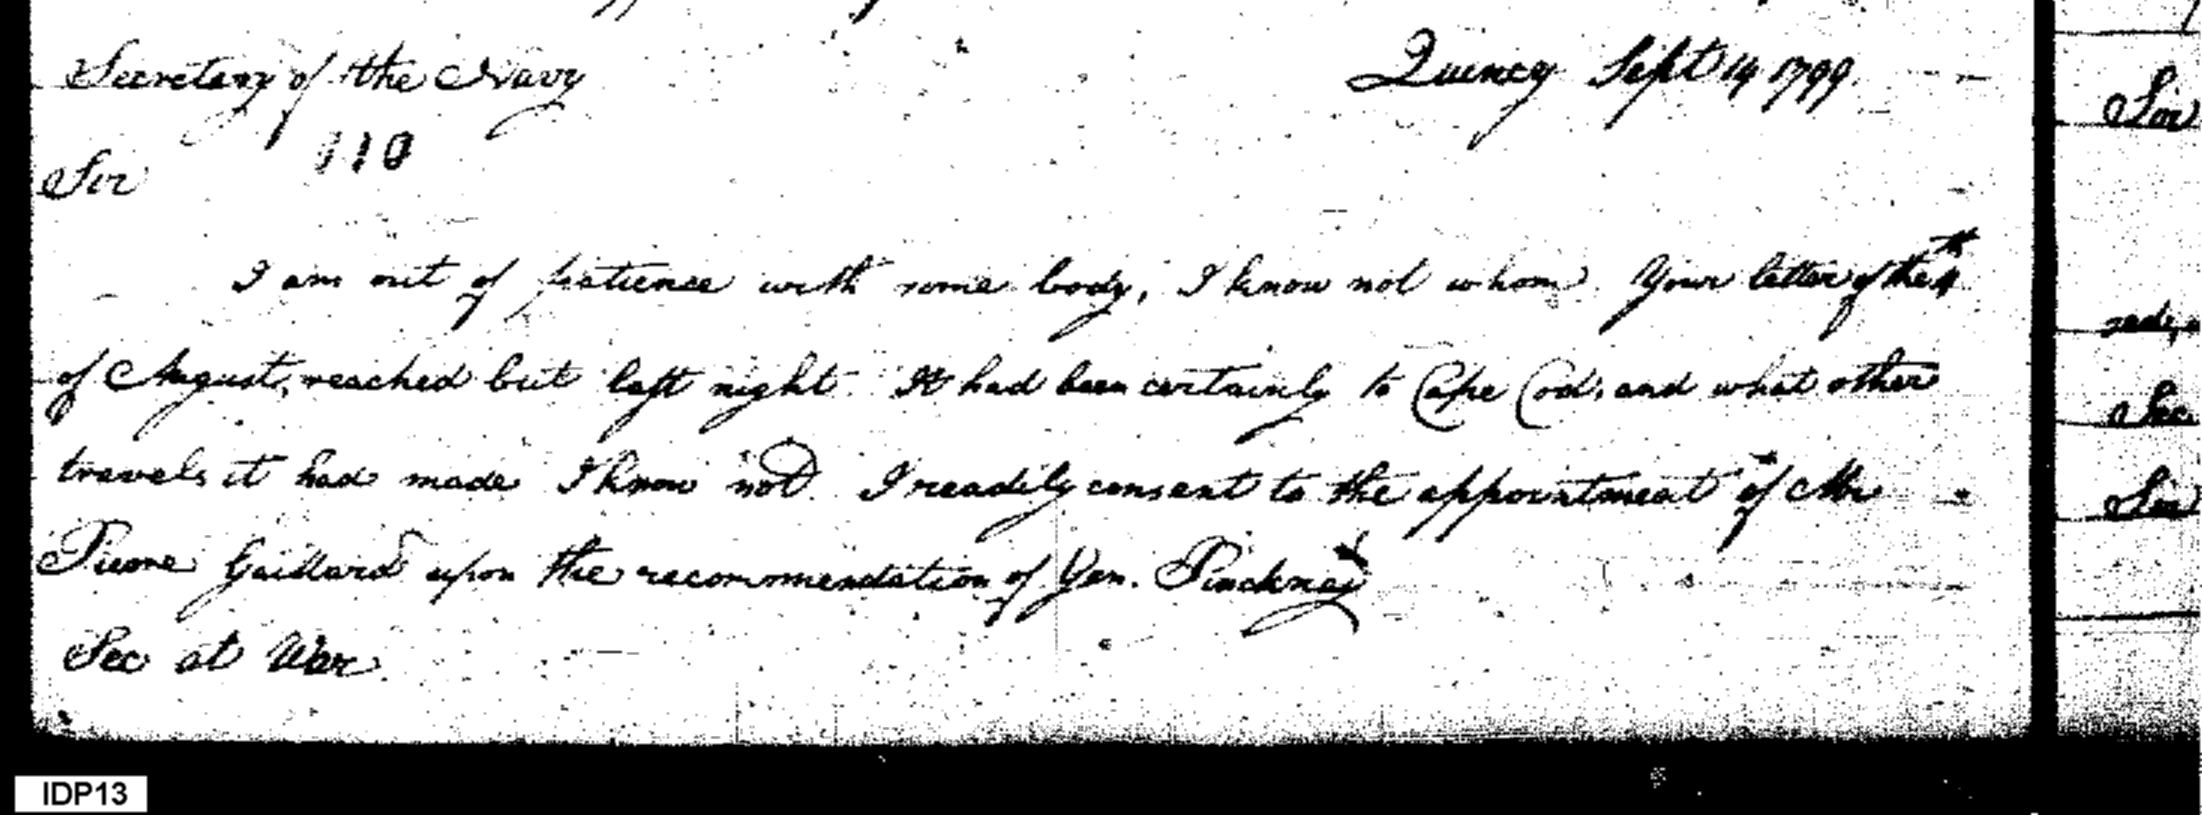 Secretary of the Navy
Quincy Sept 14 1799.
110
Sir
I am out of patience with some body, I know not whom. Your letter of the 4th
of August, reached but last night. It had been certainly to Cape Cod, and what other
travels it had made I know not. I readily consent to the appointment of Mr
Pierre Gaillard upon the recommendation of Gen. Pinckney
Sec at War.
Sir
Sec
Sir
IDP13